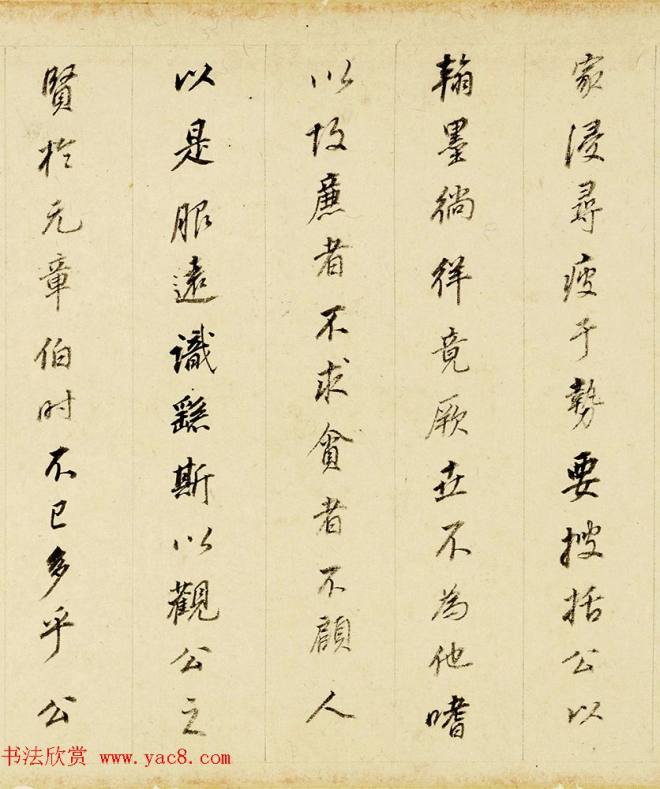 家浸尋疲于勢要搜括公以
翰墨徜徉竟厥世不為他嗜
以故廉者不求貪者不顧人
以是服遠識繇斯以觀公之
賢於元章伯时不已多乎公
书法欣赏 www.yac8.com